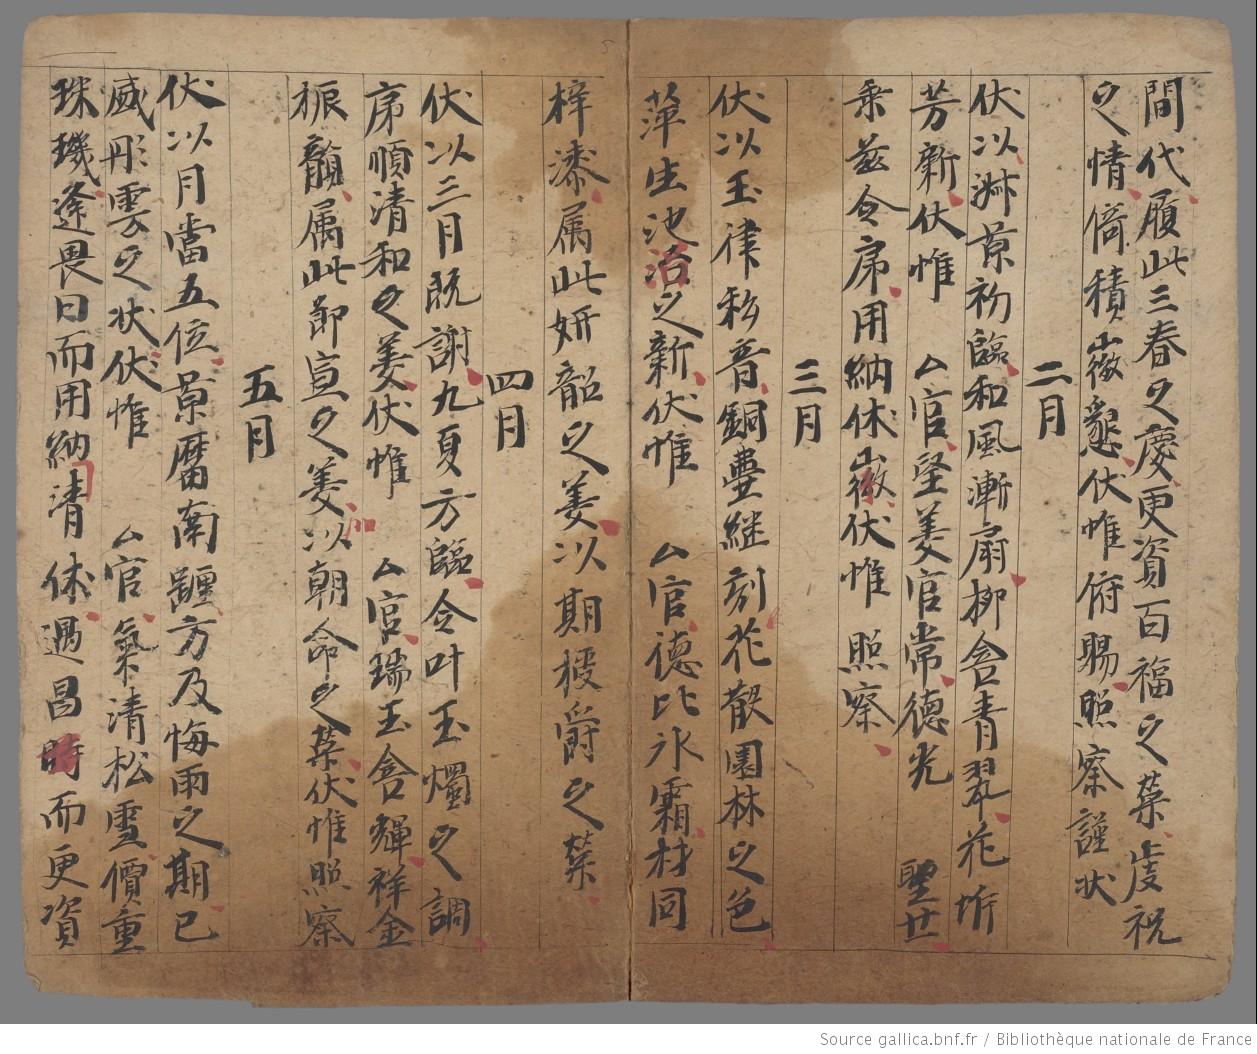 間代履此三春之慶更資百福之榮虔祝
之情倚積微懇伏惟俯賜照察謹狀
二月
伏以淋景初臨和風漸扇柳含青翠花坼
芳新伏惟 厶官望美官常德光 聖世
乘茲令序用納休徵伏惟 照察
三月
伏以玉律移音銅壷継刻花散園林之色
萍生池沼之新伏惟 厶官德比氷霜材同
梓漆属此妍韶之美以期榖爵之榮
四月
伏以三月既謝九夏方臨令叶玉燭之調
序順清和之美伏惟 厶官瑞玉含輝祥金
振 属此節宣之美以加朝命之榮伏惟照察
五月
伏以月當五位景曆南躔方及悔雨之期已
盛彤雲之狀伏惟 厶官氣清松雪價重
珠璣逢畏日而用納清休遇昌時而更資
Source gallica.bnf.fr / Bibliothèque nationale de France